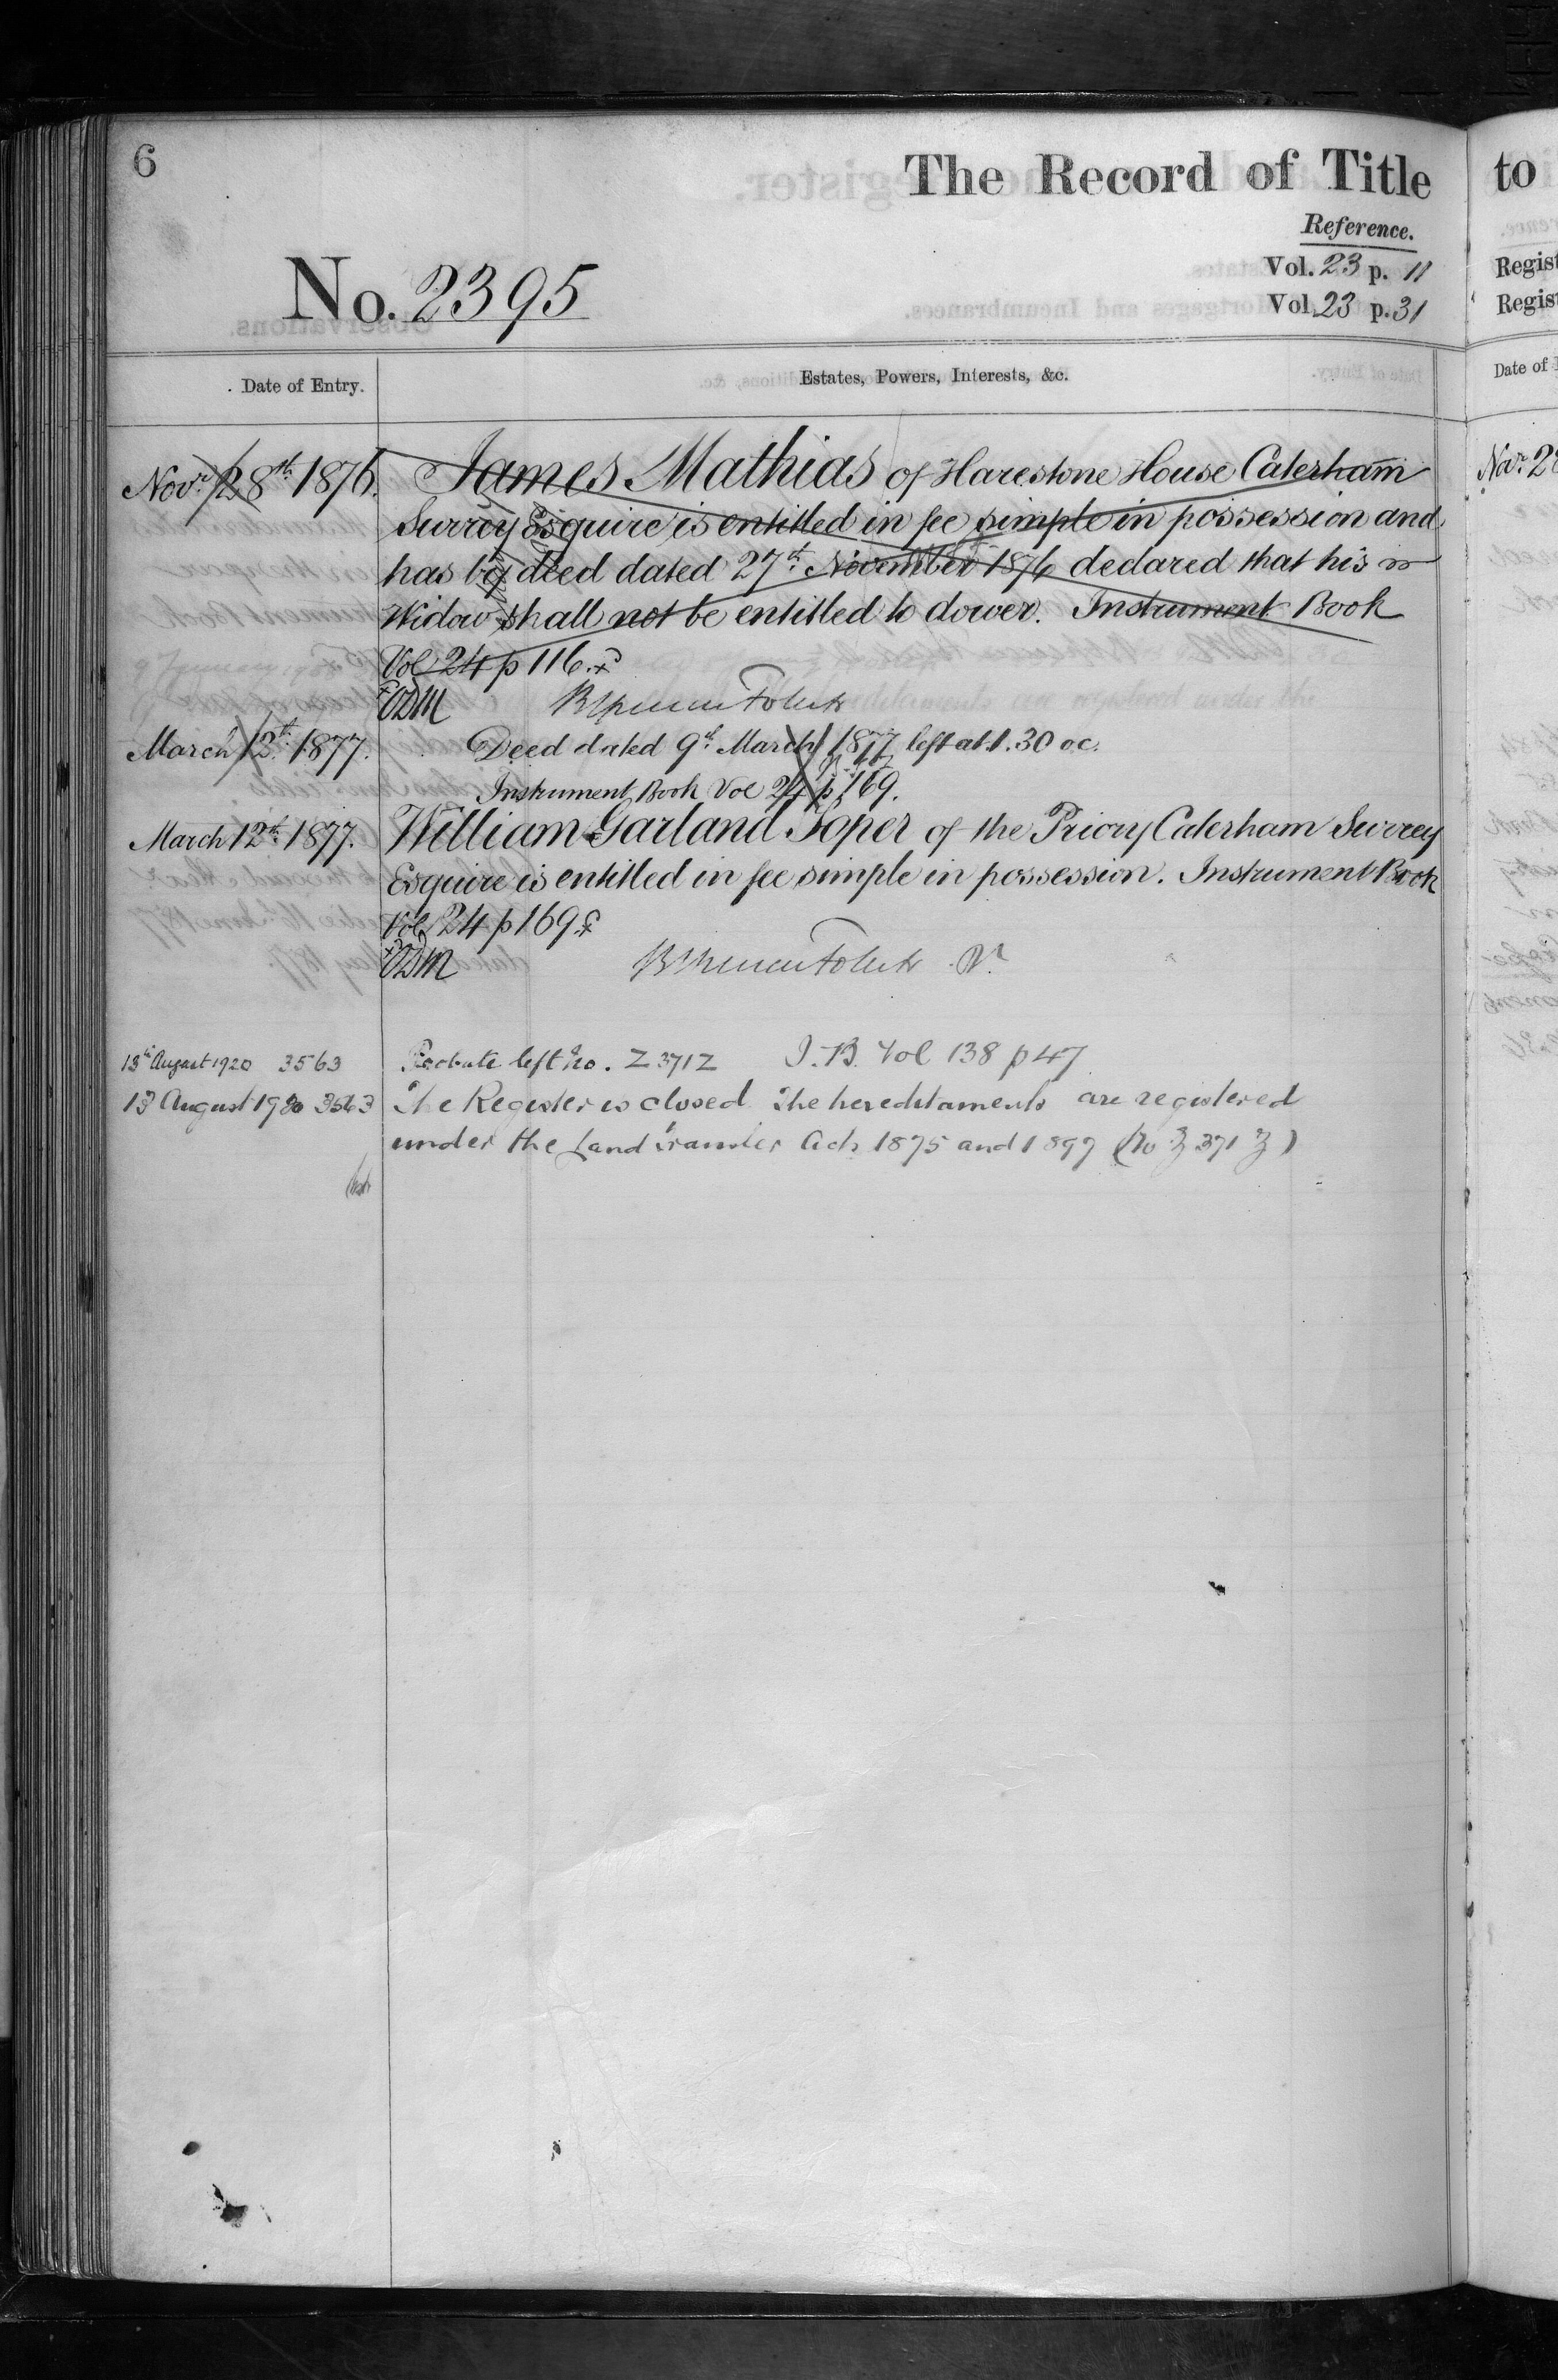 6
The Record of Title
to
Reference.
No. 2395
Vol. 23 p. 11
Vol. 23 p. 31
Regist
Regist
Date of Entry.
Estates, Powers, Interests, &c.
Date of
Nov.r 28th 1876. James Mathias of Harestone House Caterham
Surrey Esquire is entitled in fee simple in possession and
has by deed dated 27th November 1876 declared that his
Widow shall not be entitled to dower. Instrument Book
Vol 24 p 116.
ODM
March 12th 1877. Deed dated 9th March 1877 left at 1.30 o.c.
Instrument Book Vol 24 p 169.
March 12th 1877. William Garland Soper of the Priory Caterham Surrey
Esquire is entitled in fee simple in possession. Instrument Book
Vol 24 p 169
ODM
13th August 1920 3563 Probate left No. Z 371Z I.B. Vol 138 p 47
13 August 1920 3563 The Register is closed The hereditaments are registered
under the Land Transfer Acts 1875 and 1897 (No Z 371 Z)